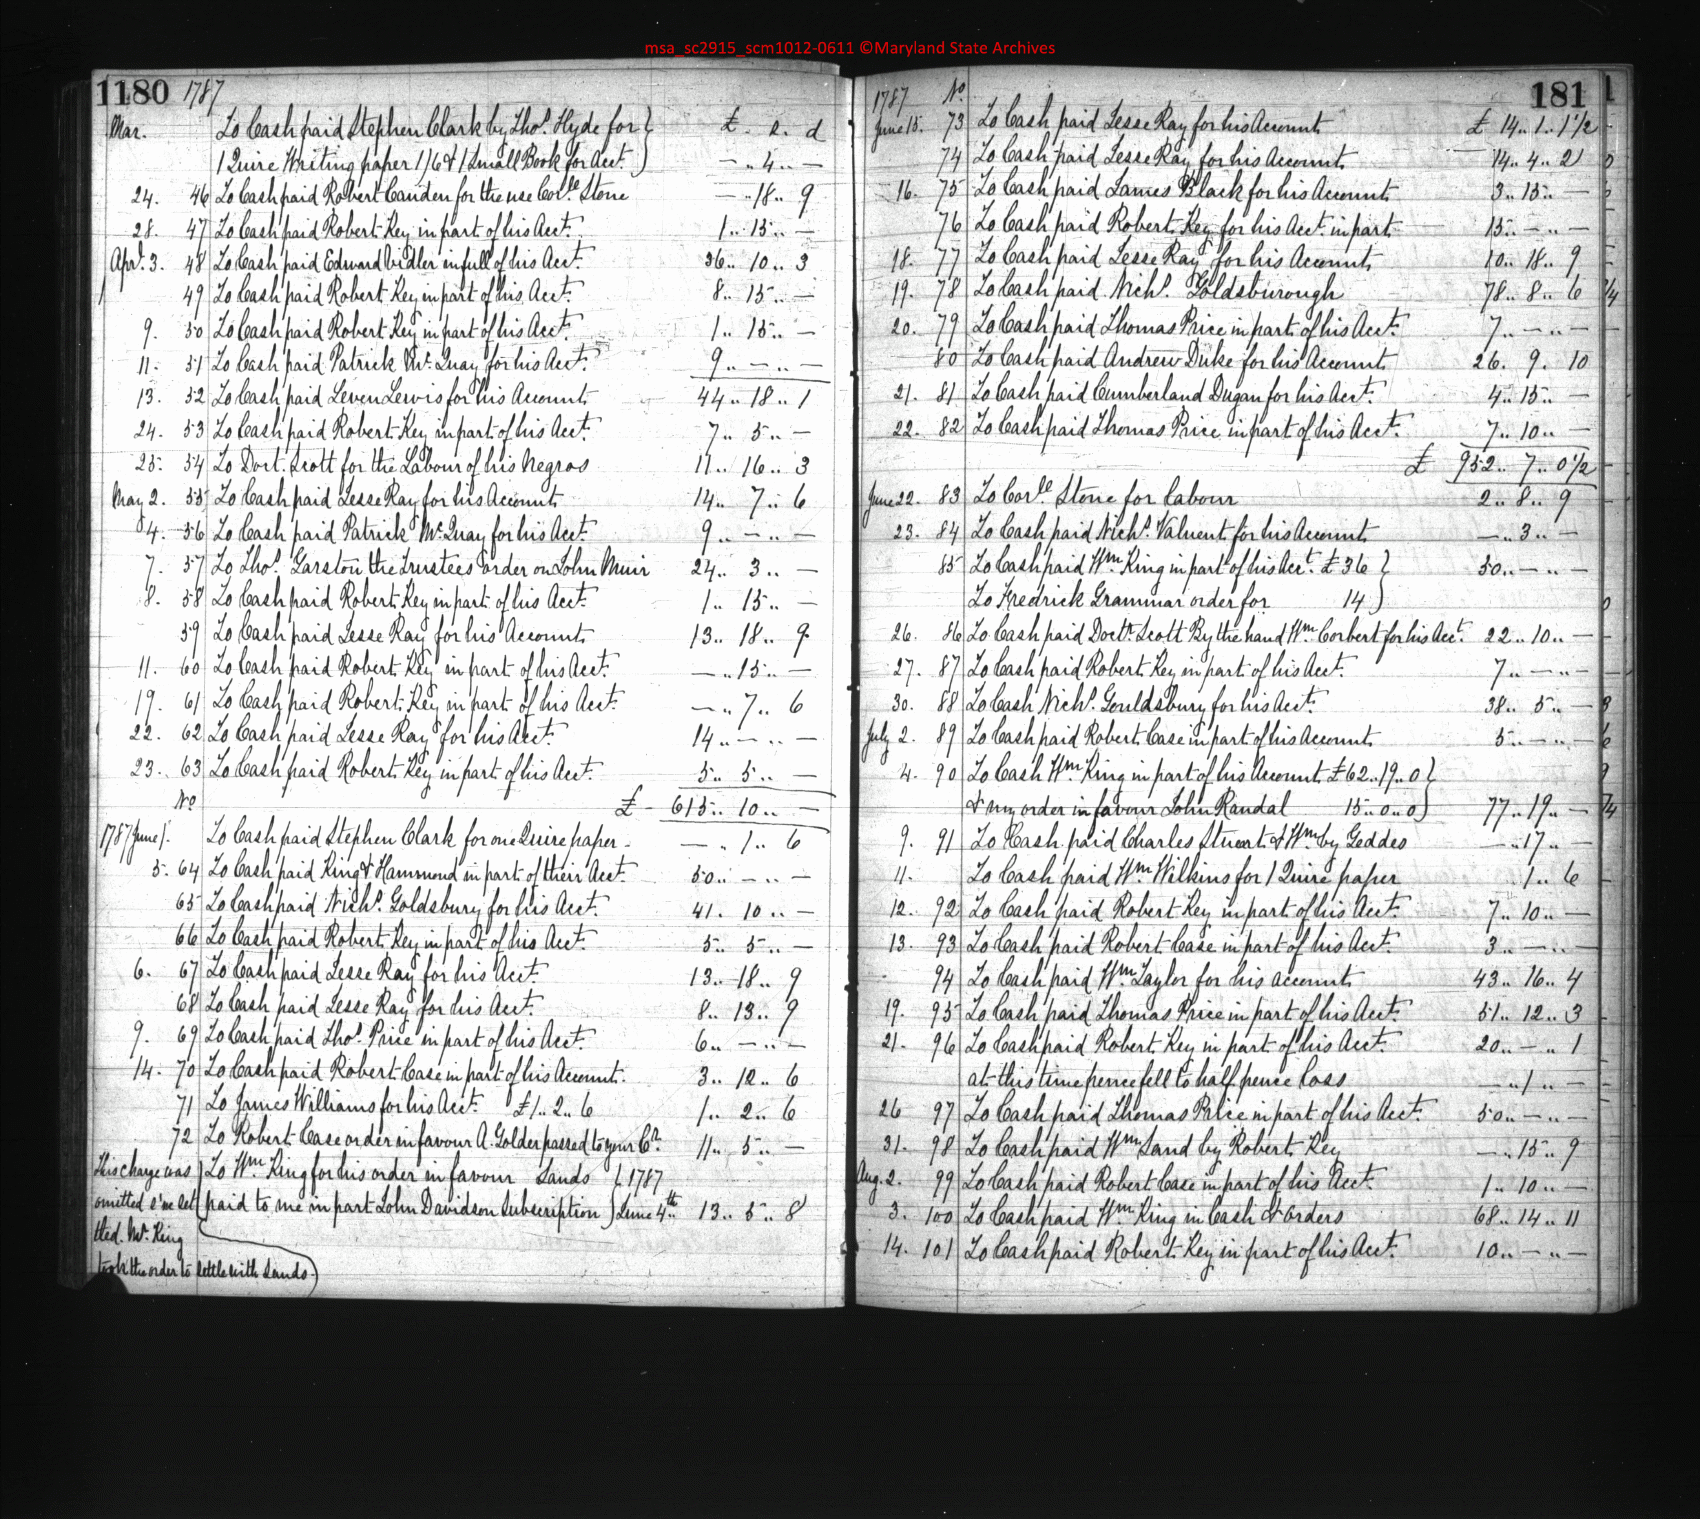 msa_sc2915_scm1012-0611 ©Maryland State Archives
1180 1787
Mar. To Cash paid Stephen Clark by Thos. Hyde for } £. s. d
1 Quire Writing paper 1/6 & 1 Small Book for Acct. } — .. 4 .. —
24. 46 To Cash paid Robert Cauden for the use Corle. Stone — .. 18 .. 9
28. 47 To Cash paid Robert Key in part of his Acct. 1 .. 15 .. —
Aprl. 3. 48 To Cash paid Edward Vidler in full of his Acct. 36 .. 10 .. 3
49 To Cash paid Robert Key in part of his Acct. 8 .. 15 .. —
9. 50 To Cash paid Robert Key in part of his Acct. 1 .. 15 .. —
11. 51 To Cash paid Patrick Mc. Quay for his Acct. 9 .. — .. —
13. 52 To Cash paid Leven Lewis for his Account 44 .. 18 .. 1
24. 53 To Cash paid Robert Key in part of his Acct. 7 .. 5 .. —
25. 54 To Doct. Scott for the Labour of his Negros 11 .. 16 .. 3
May 2. 55 To Cash paid Jesse Ray for his Account 14 .. 7 .. 6
4. 56 To Cash paid Patrick Mc. Quay for his Acct. 9 .. — .. —
7. 57 To Thos. Garston the Trustees order on John Muir 24 .. 3 .. —
8. 58 To Cash paid Robert Key in part of his Acct. 1 .. 15 .. —
59 To Cash paid Jesse Ray for his Account 13 .. 18 .. 9
11. 60 To Cash paid Robert Key in part of his Acct. — .. 15 .. —
19. 61 To Cash paid Robert Key in part of his Acct. — .. 7 .. 6
22. 62 To Cash paid Jesse Ray for his Acct. 14 .. — .. —
23. 63 To Cash paid Robert Key in part of his Acct. 5 .. 5 .. —
No £ 615 .. 10 .. —
1787 June 1. To Cash paid Stephen Clark for one Quire paper — .. 1 .. 6
5. 64 To Cash paid King & Hammond in part of their Acct. 50 .. — .. —
65 To Cash paid Nichs. Goldsbury for his Acct. 41 .. 10 .. —
66 To Cash paid Robert Key in part of his Acct. 5 .. 5 .. —
6. 67 To Cash paid Jesse Ray for his Acct. 13 .. 18 .. 9
68 To Cash paid Jesse Ray for his Acct. 8 .. 13 .. 9
9. 69 To Cash paid Thos. Price in part of his Acct. 6 .. — .. —
14. 70 To Cash paid Robert Case in part of his Account. 3 .. 12 .. 6
71 To James Williams for his Acct. £1 .. 2 .. 6 1 .. 2 .. 6
72 To Robert Case order in favour A. Golder passed to your Cr. 11 .. 5 .. —
This charge was To Wm. King for his order in favour Sands } 1787
omitted & we set paid to me in part John Davidson Subscription } June 4th. 13 .. 5 .. 8
tled. Mr. King
took the order to settle with Sands.
181
1787 No.
June 15. 73 To Cash paid Jesse Ray for his Account £ 14 .. 1 .. 1 1/2
74 To Cash paid Jesse Ray for his Account 14 .. 4 .. 2
16. 75 To Cash paid James Black for his Account 3 .. 15 .. —
76 To Cash paid Robert Key for his Acct. in part 15 .. — .. —
18. 77 To Cash paid Jesse Ray for his Account 10 .. 18 .. 9
19. 78 To Cash paid Nichs. Goldsburough 78 .. 8 .. 6
20. 79 To Cash paid Thomas Price in part of his Acct. 7 .. — .. —
80 To Cash paid Andrew Duke for his Account 26 . 9 . 10
21. 81 To Cash paid Cumberland Dugan for his Acct. 4 .. 15 .. —
22. 82 To Cash paid Thomas Price in part of his Acct. 7 .. 10 .. —
£ 952 .. 7 .. 0 1/2
June 22. 83 To Corle. Stone for Labour 2 .. 8 .. 9
23. 84 To Cash paid Nichs. Valuent for his Account — .. 3 .. —
85 To Cash paid Wm. King in part of his Acct. £36 } 50 .. — .. —
To Fredrick Grammar order for 14 }
26. 86 To Cash paid Doctr. Scott By the hand Wm. Corbert for his Acct. 22 .. 10 .. —
27. 87 To Cash paid Robert Key in part of his Acct. 7 .. — .. —
30. 88 To Cash Nichs. Gouldsbury for his Acct. 38 .. 5 .. —
July 2. 89 To Cash paid Robert Case in part of his Account 5 .. — .. —
4. 90 To Cash Wm. King in part of his Account £62 .. 19 .. 0 }
& my order in favour John Randal 15 .. 0 .. 0 } 77 .. 19 .. —
9. 91 To Cash paid Charles Stuart & Wm. by Geddes — .. 17 .. —
11. To Cash paid Wm. Wilkins for 1 Quire paper 1 .. 6
12. 92 To Cash paid Robert Key in part of his Acct. 7 .. 10 .. —
13. 93 To Cash paid Robert Case in part of his Acct. 3 .. — .. —
94 To Cash paid Wm. Taylor for his account 43 .. 16 .. 4
19. 95 To Cash paid Thomas Price in part of his Acct. 51 .. 12 .. 3
21. 96 To Cash paid Robert Key in part of his Acct. 20 .. — .. 1
at this time pence fell to half pence loss — .. 1 .. —
26 97 To Cash paid Thomas Price in part of his Acct. 50 .. — .. —
31. 98 To Cash paid Wm. Sand by Robert Key — .. 15 .. 9
Aug. 2. 99 To Cash paid Robert Case in part of his Acct. 1 .. 10 .. —
3. 100 To Cash paid Wm. King in Cash & Orders 68 .. 14 .. 11
14. 101 To Cash paid Robert Key in part of his Acct. 10 .. — .. —